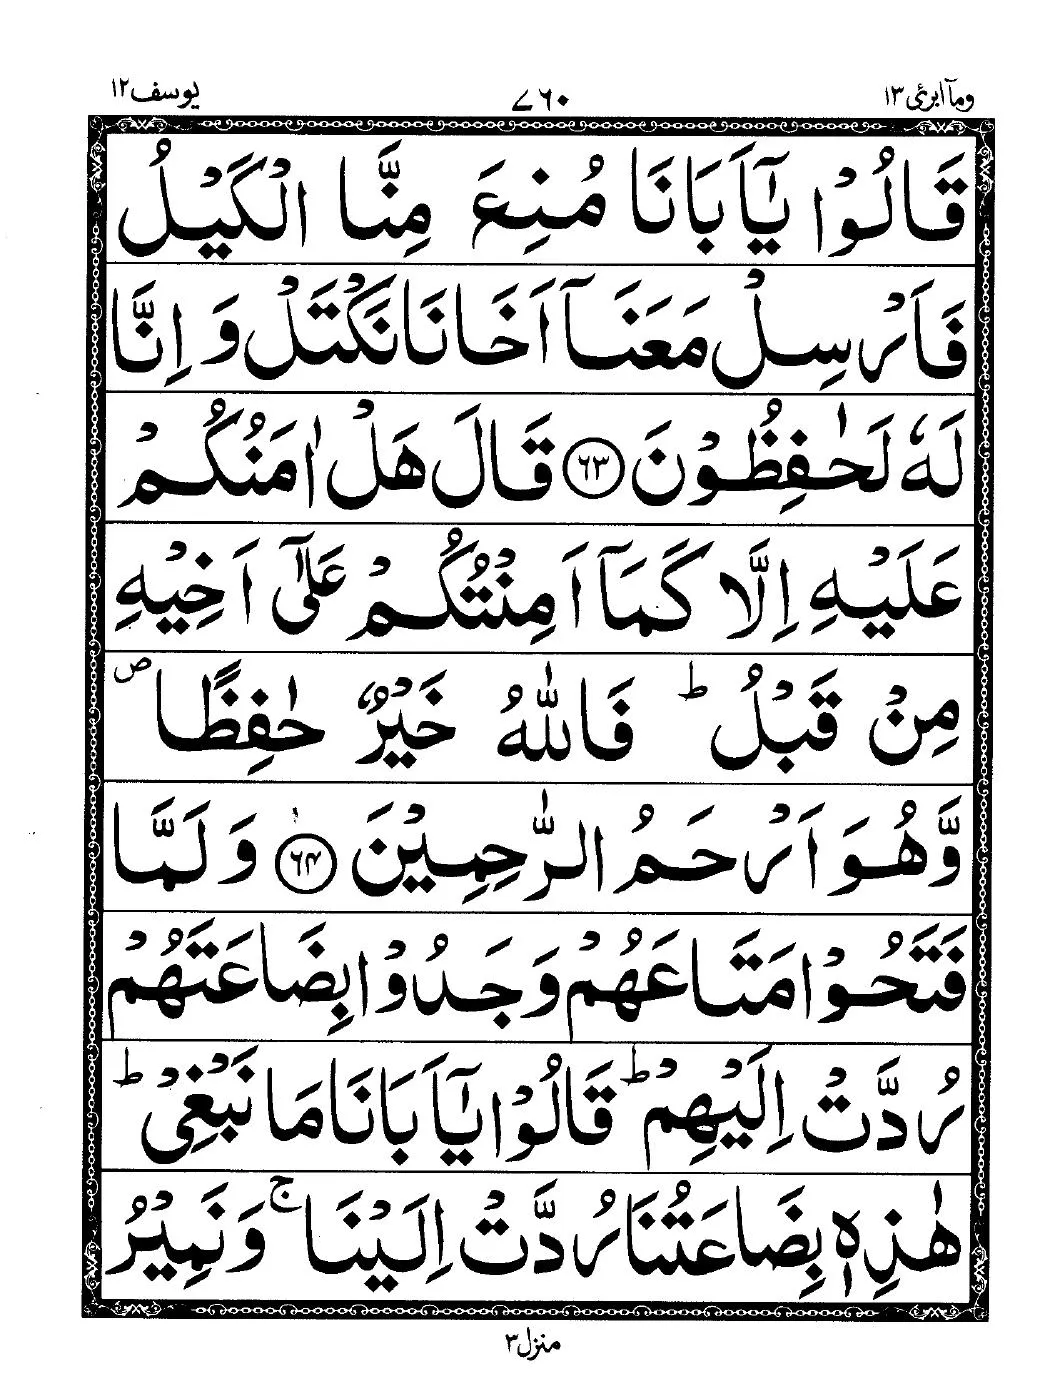 وما ابرئ ١٣
٧٦٠
يوسف ١٢
قَالُوْا يٰۤاَبَانَا مُنِعَ مِنَّا الْكَيْلُ
فَاَرْسِلْ مَعَنَاۤ اَخَانَا نَكْتَلْ وَ اِنَّا
لَهٗ لَحٰفِظُوْنَ ﴿٦٣﴾ قَالَ هَلْ اٰمَنُكُمْ
عَلَيْهِ اِلَّا كَمَاۤ اَمِنْتُكُمْ عَلٰۤى اَخِيْهِ
مِنْ قَبْلُ ؕ فَاللّٰهُ خَيْرٌ حٰفِظًا ۪
وَّهُوَ اَرْحَمُ الرّٰحِمِيْنَ ﴿٦٤﴾ وَلَمَّا
فَتَحُوْا مَتَاعَهُمْ وَجَدُوْا بِضَاعَتَهُمْ
رُدَّتْ اِلَيْهِمْ ؕ قَالُوْا يٰۤاَبَانَا مَا نَبْغِيْ ؕ
هٰذِهٖ بِضَاعَتُنَا رُدَّتْ اِلَيْنَا ۚ وَنَمِيْرُ
منزل ٣